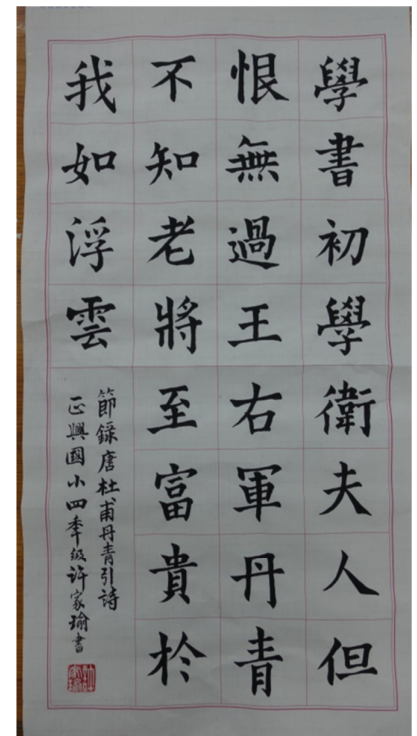 學書初學衛夫人但
恨無過王右軍丹青
不知老將至富貴於
我如浮雲
節錄唐杜甫丹青引詩
正興國小四年級許家瑜書